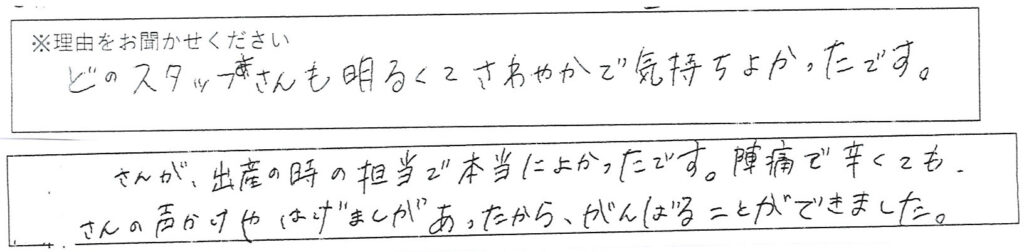 ※理由をお聞かせください
どのスタッフさんも明るくてさわやかで気持ちよかったです。
さんが、出産の時の担当で本当によかったです。陣痛で辛くても、
さんの声かけやはげましがあったから、がんばることができました。